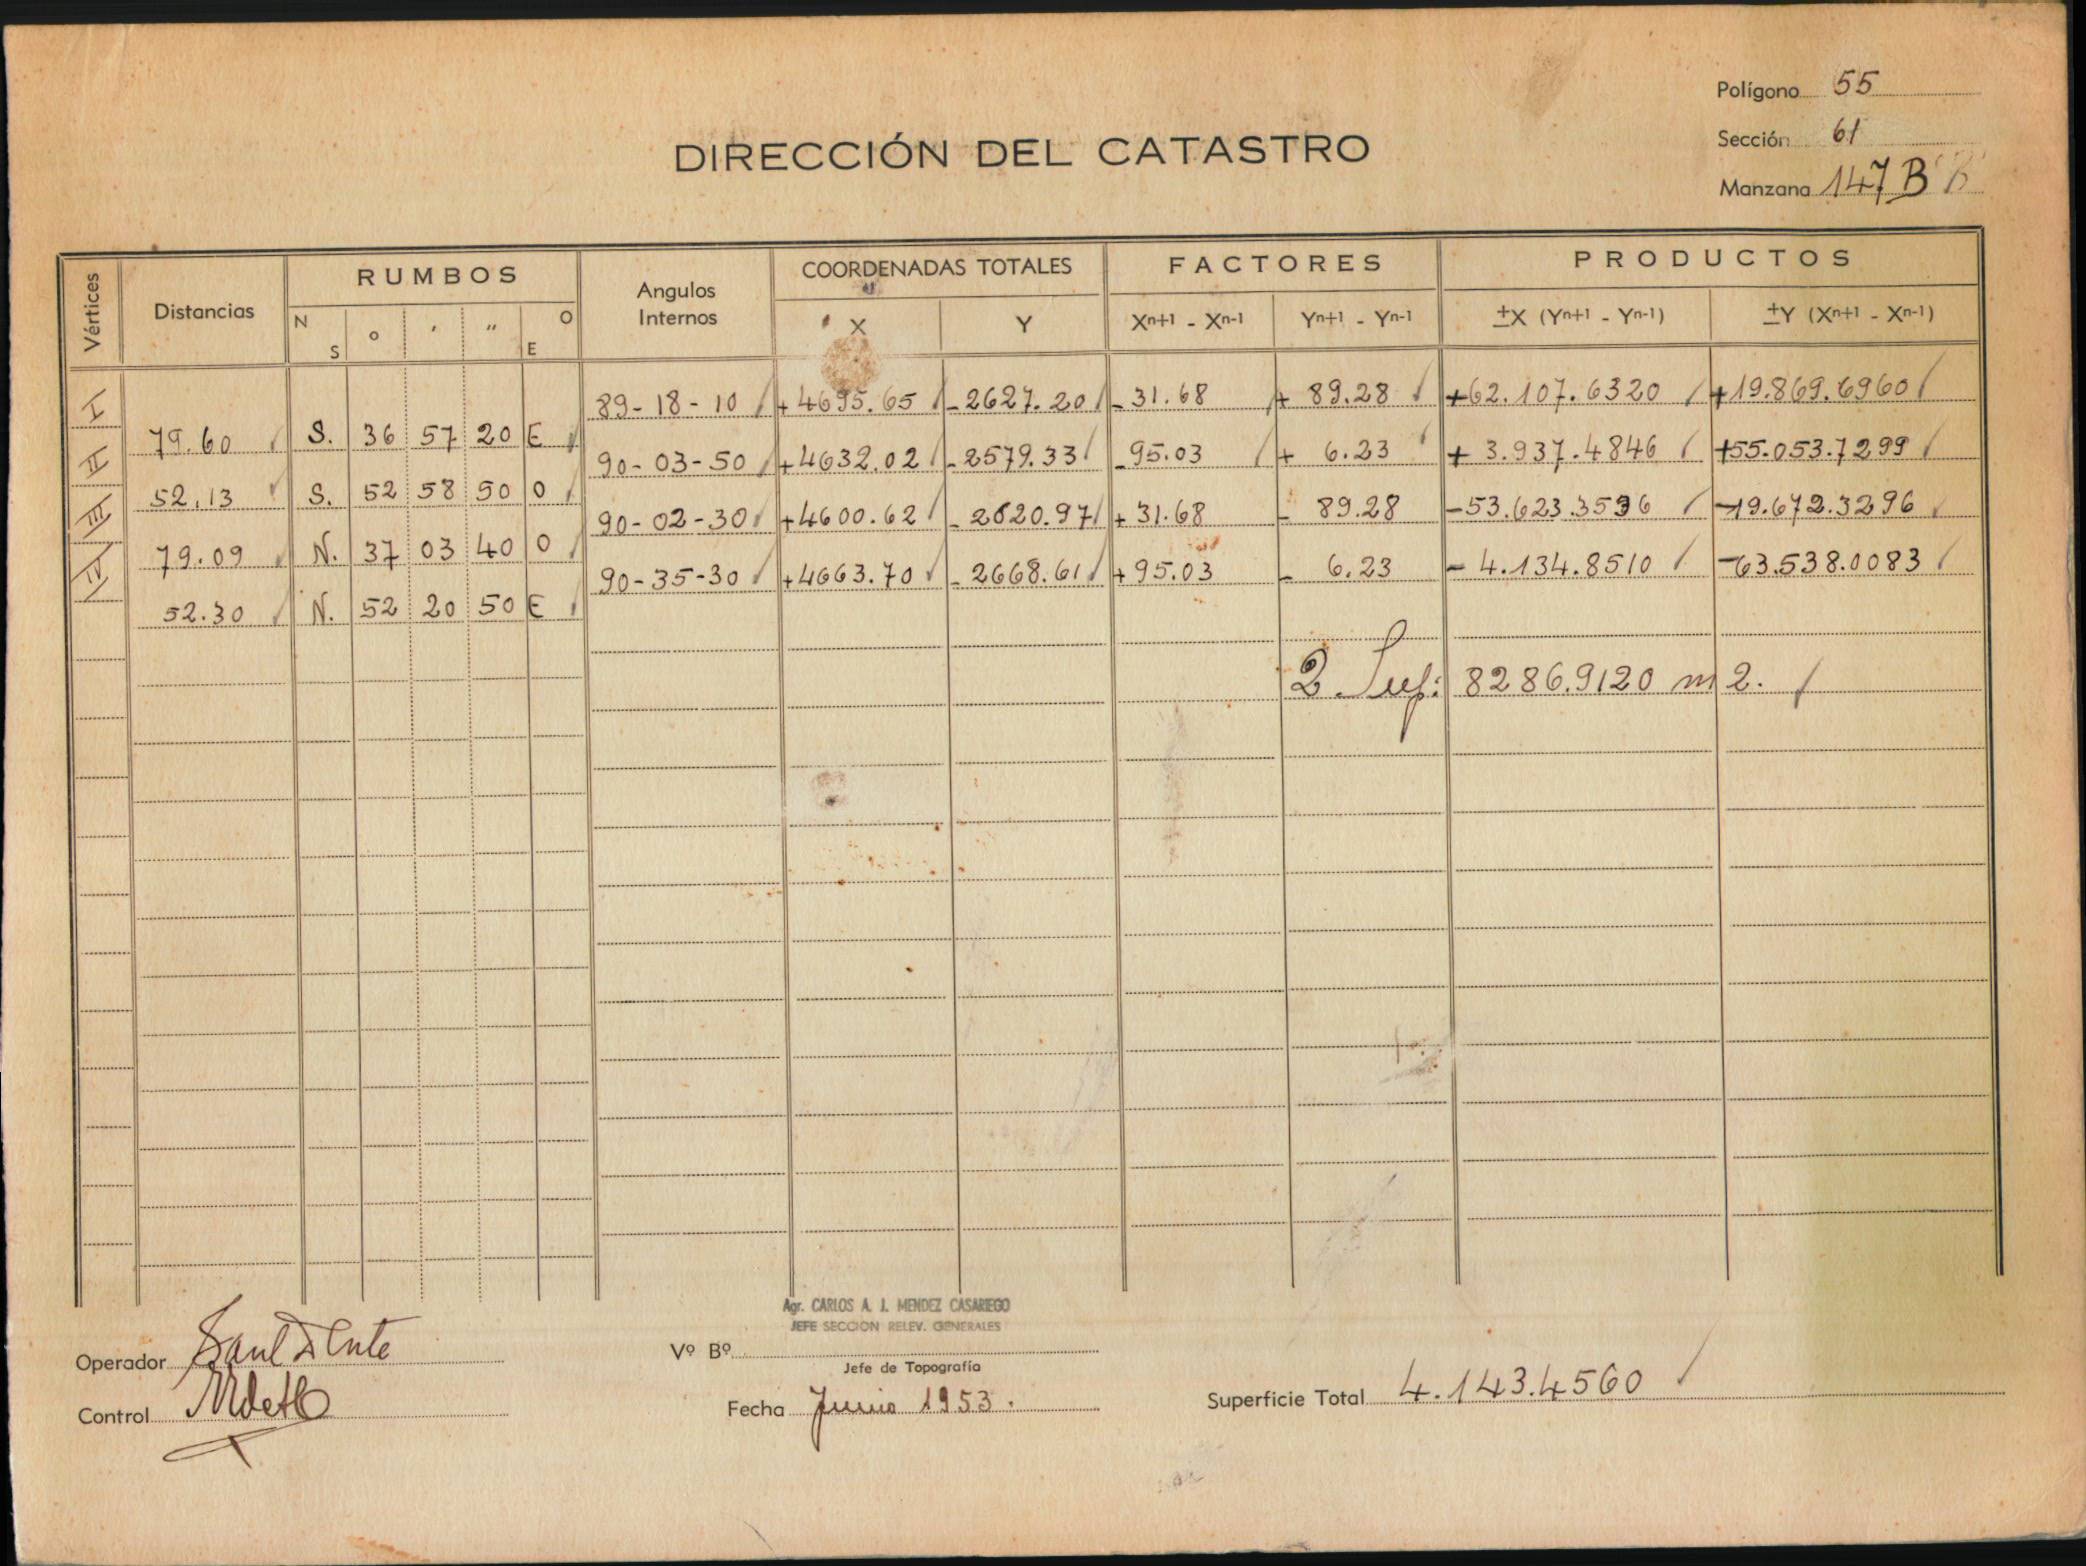 Polígono 55
Sección 61
Manzana 147 B
DIRECCIÓN DEL CATASTRO
Vértices Distancias RUMBOS Angulos Internos COORDENADAS TOTALES FACTORES PRODUCTOS
N S o ′ ″ O E X Y Xn+1 - Xn-1 Yn+1 - Yn-1 ±X (Yn+1 - Yn-1) ±Y (Xn+1 - Xn-1)
I 89-18-10 +4695.65 -2627.20 -31.68 + 89.28 +62.107.6320 +19.869.6960
79.60 S. 36 57 20 E
II 90-03-50 +4632.02 -2579.33 -95.03 + 6.23 + 3.937.4846 +55.053.7299
52.13 S. 52 58 50 O
III 90-02-30 +4600.62 -2620.97 +31.68 - 89.28 -53.623.3536 -19.672.3296
79.09 N. 37 03 40 O
IV 90-35-30 +4663.70 -2668.61 +95.03 - 6.23 - 4.134.8510 -63.538.0083
52.30 N. 52 20 50 E
2 Sup: 8286.9120 m2.
Agr. CARLOS A. J. MENDEZ CASARIEGO
JEFE SECCION RELEV. GENERALES
Operador
Vº Bº
Jefe de Topografía
Control
Fecha Junio 1953.
Superficie Total 4.143.4560